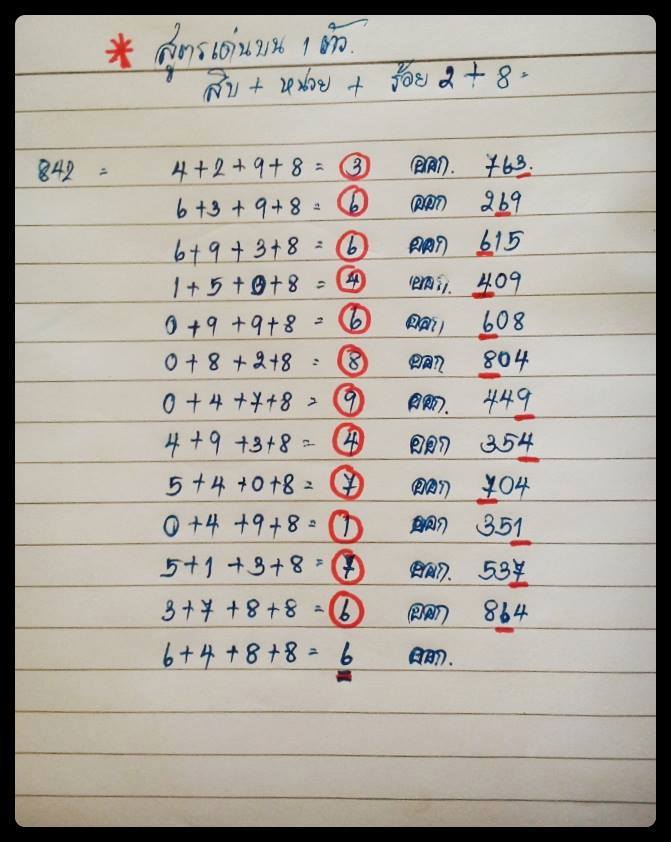 * สูตรเด่นบน 1 ตัว.
สิบ + หน่วย + ร้อย 2 + 8 =
842 = 4+2+9+8 = 3 ออก. 763.
6+3+9+8 = 6 ออก 269
6+9+3+8 = 6 ออก 615
1+5+0+8 = 4 ออก. 409
0+9+9+8 = 6 ออก 608
0+8+2+8 = 8 ออก 804
0+4+7+8 = 9 ออก. 449
4+9+3+8 = 4 ออก 354
5+4+0+8 = 7 ออก 704
0+4+9+8 = 1 ออก 351
5+1+3+8 = 7 ออก. 537
3+7+8+8 = 6 ออก 864
6+4+8+8 = 6 ออก.